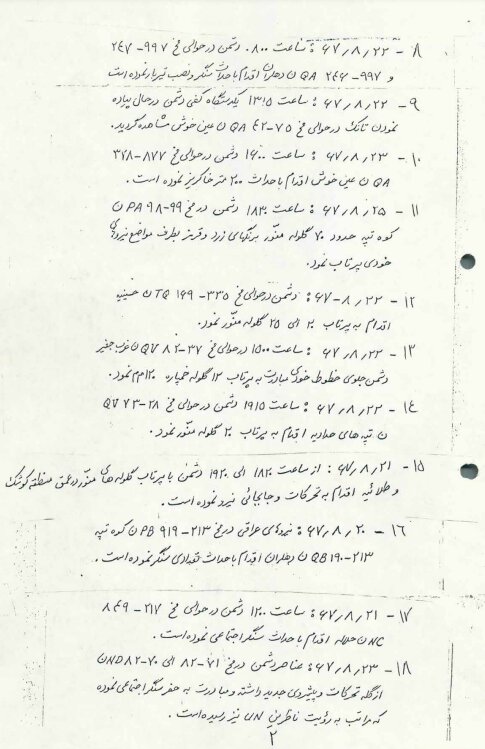 ۸ - ۶۷/۸/۲۲ : ساعت ۸۰۰ دشمن در حوالی مخ ۹۹۷-۲۴۷
و ۹۹۷-۲۴۶ QA ن دهلران اقدام باحداث سنگر و نصب تیربار نموده است
۹ - ۶۷/۸/۲۲ : ساعت ۱۳۱۵ یکدستگاه کفی دشمن در حال پیاده
نمودن تانک در حوالی مخ ۷۵-۴۲ QA ن عین خوش مشاهده گردید.
۱۰ - ۶۷/۸/۲۳ : ساعت ۱۶۰۰ دشمن در حوالی مخ ۸۷۷-۳۷۸
QA ن عین خوش اقدام باحداث ۲۰۰ متر خاکریز نموده است.
۱۱ - ۶۷/۸/۲۵ : ساعت ۱۸۳۰ دشمن در مخ ۹۹-۹۸ PA ن
کوه تپه حدود ۷۰ گلوله منور برنگهای زرد و قرمز بطرف مواضع نیروهای
خودی پرتاب نمود.
۱۲ - ۶۷-۸/۲۲ : دشمن در حوالی مخ ۳۳۵-۱۶۹ TQ ن حسینیه
اقدام به پرتاب ۲۰ الی ۲۵ گلوله منور نمود.
۱۳ - ۶۷/۸/۲۲ : ساعت ۱۵۰۰ در حوالی مخ ۳۷-۸۲ QV ن غرب جفیر
دشمن جلوی خطوط خودی مبادرت به پرتاب ۱۲ گلوله خمپاره ۱۲۰ م م نمود.
۱۴ - ۶۷/۸/۲۲ : ساعت ۱۹۱۵ دشمن در حوالی مخ ۲۸-۷۳ QV
ن تپه های اقدام به پرتاب ۲۰ گلوله منور نمود.
۱۵ - ۶۷/۸/۲۱ : از ساعت ۱۸۳۰ الی ۱۹۳۰ دشمن با پرتاب گلوله های منور در عمق منطقه کوشک
و طلائیه اقدام به تحرکات و جابجائی نیرو نموده است.
۱۶ - ۶۷/۸/۲۰ : نیروهای عراقی در مخ ۲۱۳-۹۱۹ PB ن کوه تپه
۲۱۳-۱۹۰ QB ن دهلران اقدام باحداث تعدادی سنگر نموده است.
۱۷ - ۶۷/۸/۲۱ : ساعت ۱۲۰۰ دشمن در حوالی مخ ۲۱۷-۸۴۹
NC ن اقدام باحداث سنگر اجتماعی نموده است.
۱۸ - ۶۷/۸/۲۳ : عناصر دشمن در مخ ۷۱-۸۲ الی ۷۰-۸۲ ND ن
ازگله تحرکات و پیشروی جدید داشته و مبادرت به حفر سنگر اجتماعی نموده
که مراتب به رؤیت ناظرین UN نیز رسیده است.
۲